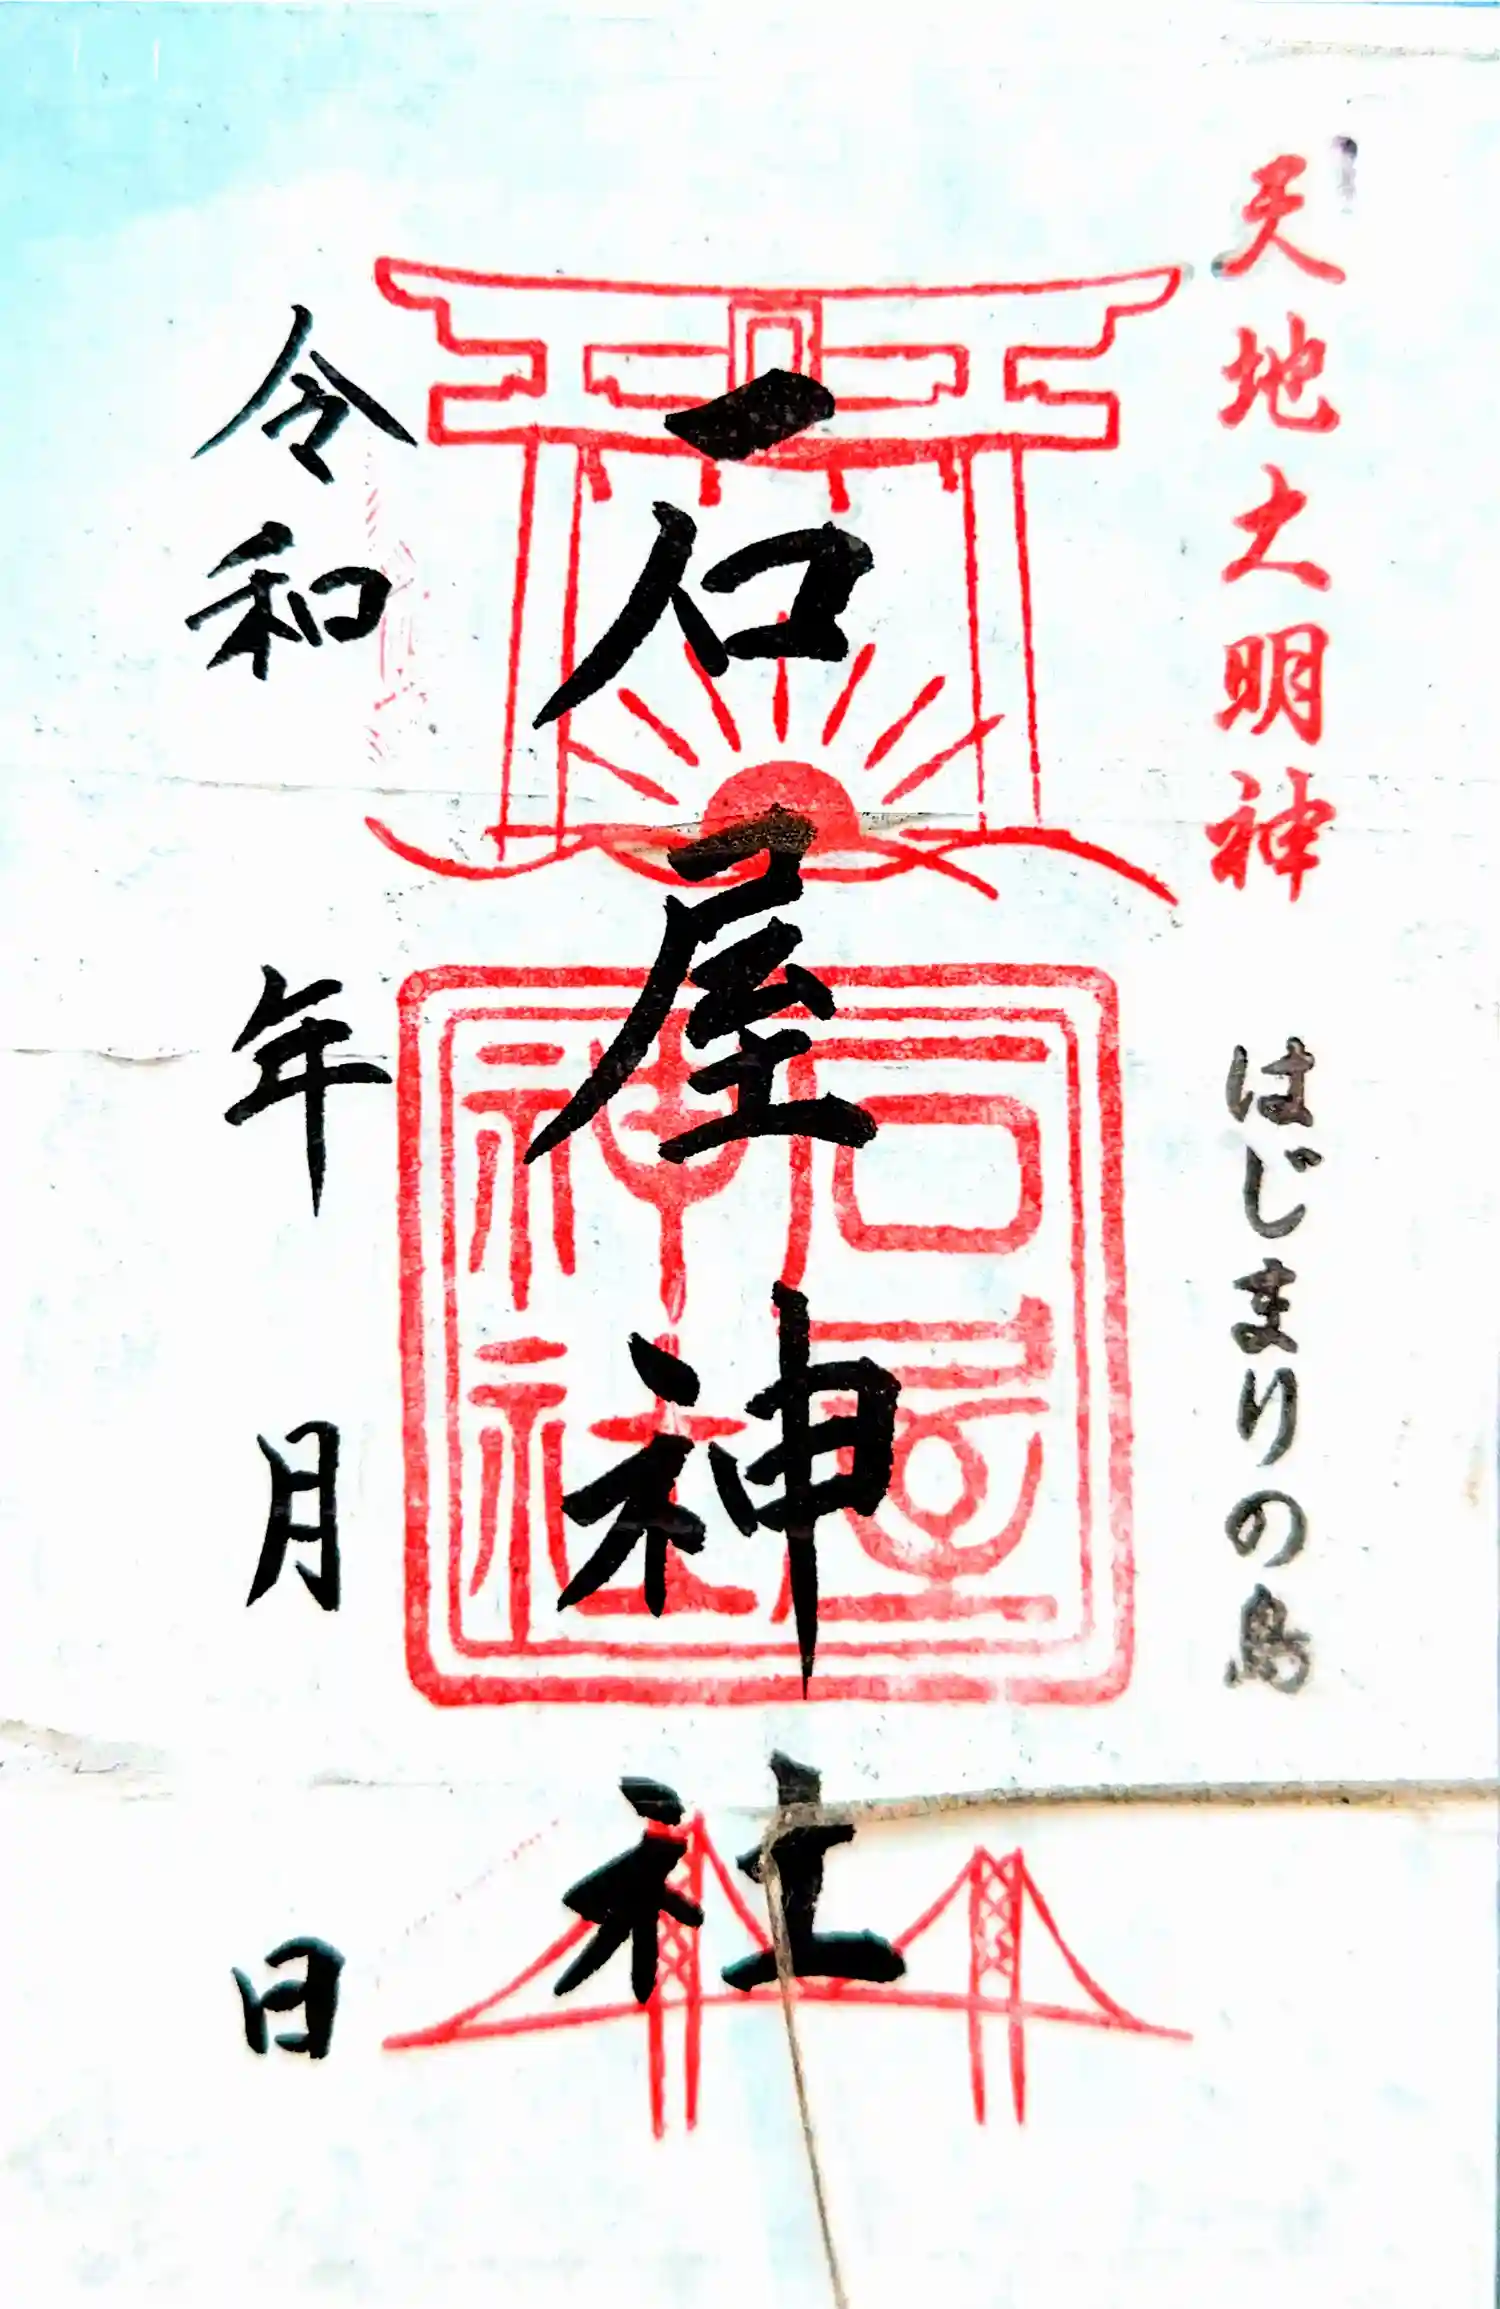 天地大明神 はじまりの島
石屋神社
石屋
神社
令和 年 月 日